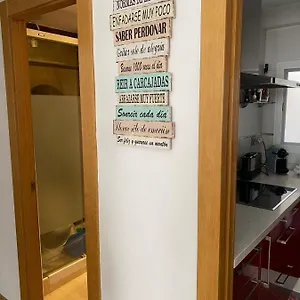 NORMAS DE
ENFADARSE MUY POCO
SABER PERDONAR
Gritar sólo de alegría
Besarse 1000 veces al día
REIR A CARCAJADAS
ABRAZARSE MUY FUERTE
Sonreír cada día
Llorar sólo de emoción
Ser feliz y quererse un montón